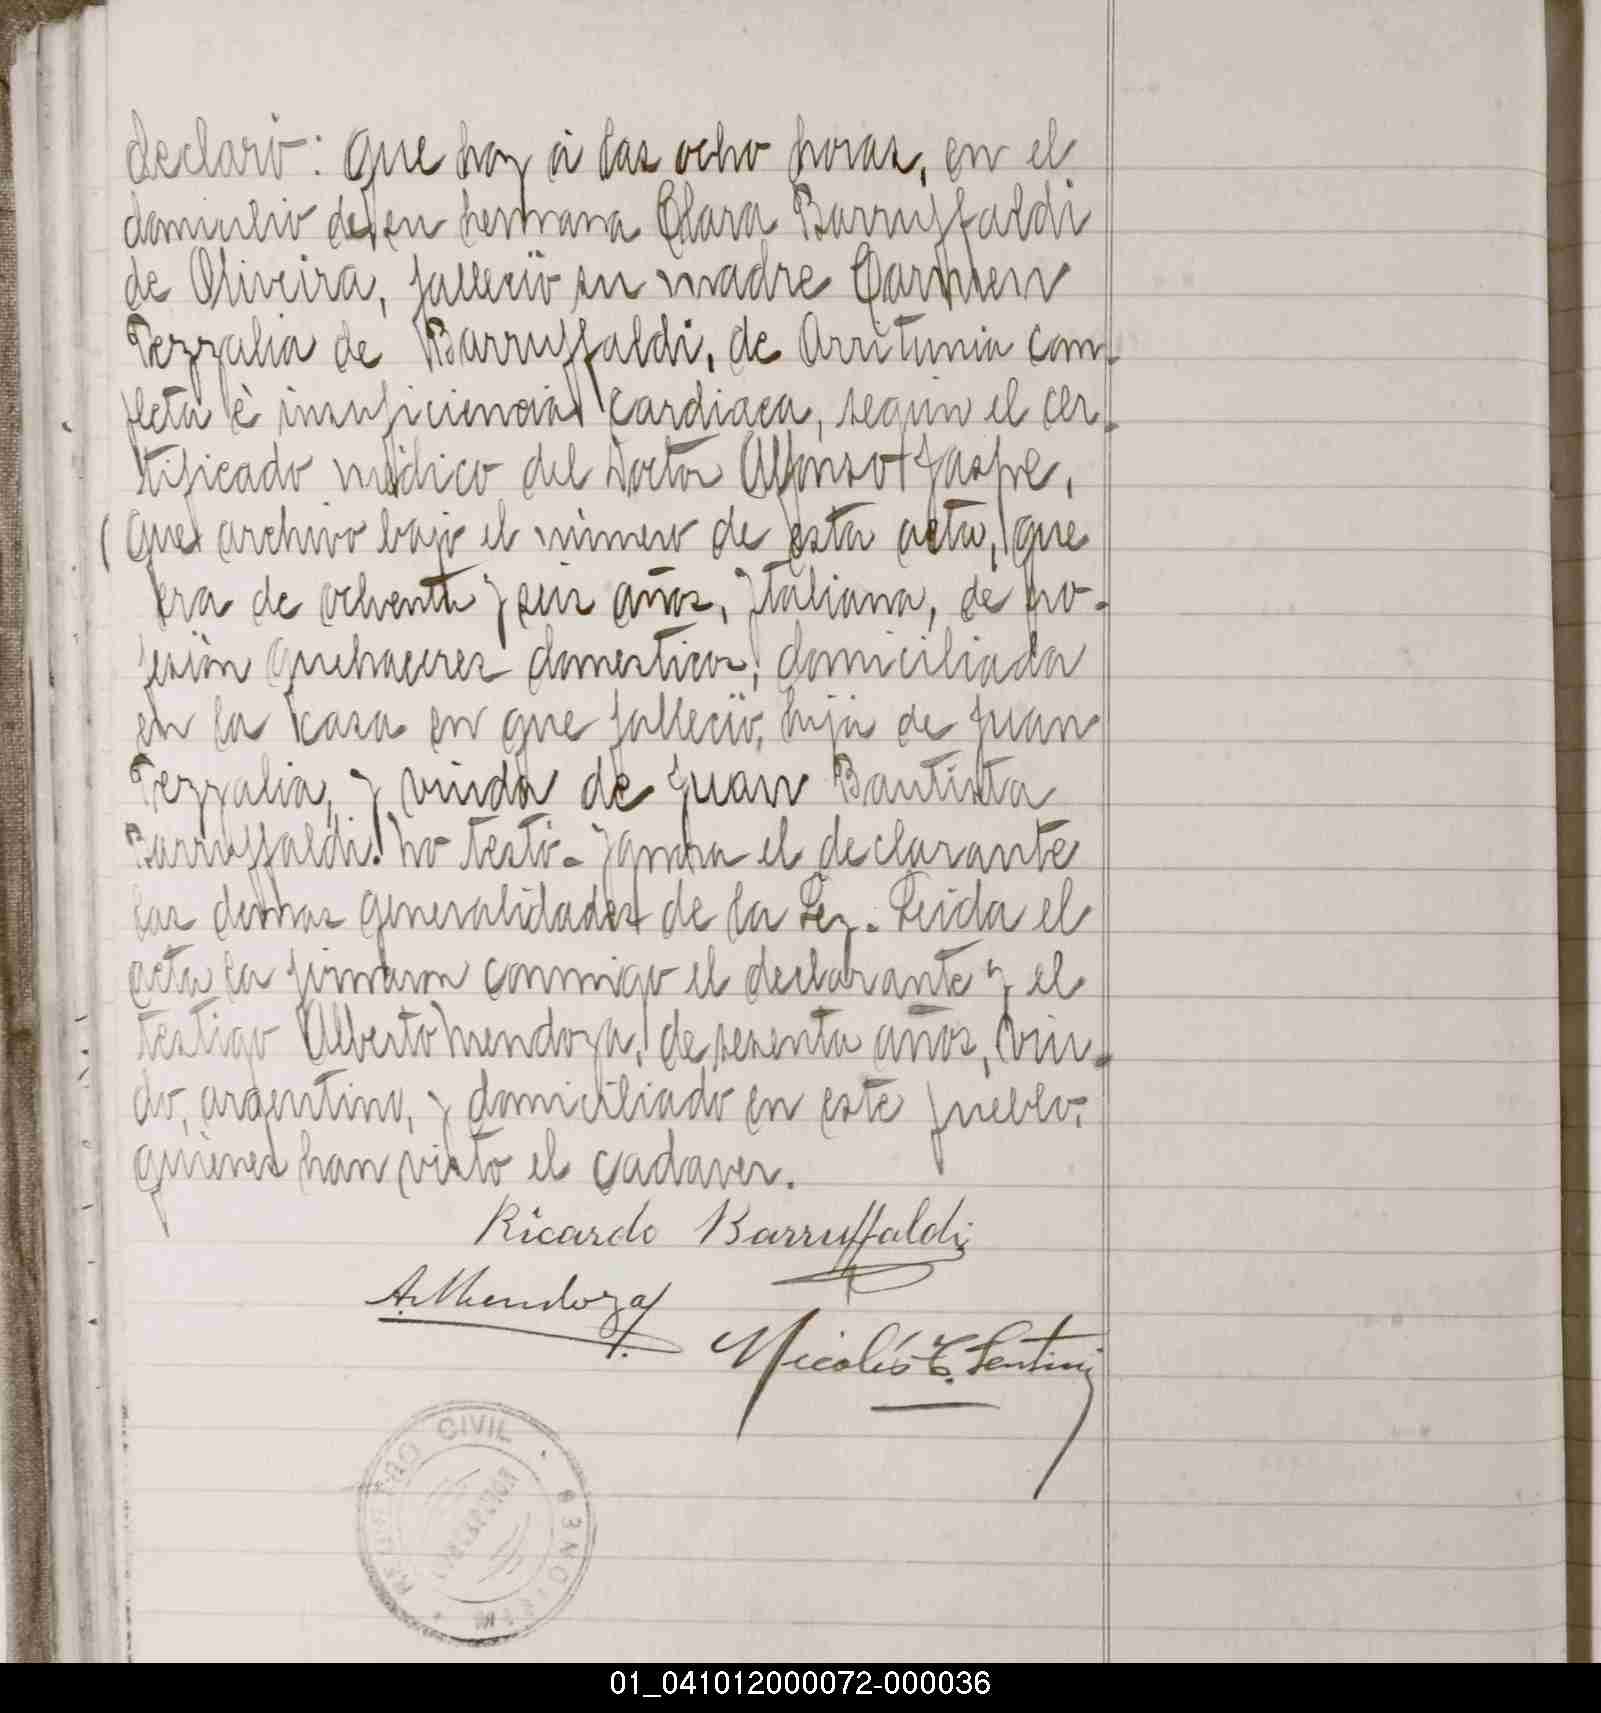 declaró: Que hoy á las ocho horas, en el
domicilio de su hermana Clara Barruffaldi
de Oliveira, falleció su madre Carmen
Pezzalia de Barruffaldi, de Arritmia com-
pleta é insuficiencia cardiaca, segun el cer-
tificado médico del Doctor Alfonso Jaspe,
que archivo bajo el número de esta acta, que
era de ochenta y seis años, Italiana, de pro-
fesión quehaceres domesticos, domiciliada
en la casa en que falleció, hija de Juan
Pezzalia, y viuda de Juan Bautista
Barruffaldi. No testó. Ignora el declarante
las demas generalidades de la Ley. Leida el
acta la firmaron conmigo el declarante y el
testigo Alberto Mendoza, de sesenta años, viu-
do, argentino, y domiciliado en este pueblo,
quienes han visto el cadaver.
Ricardo Barruffaldi
A. Mendoza
Nicolás C. Sentini
REGISTRO CIVIL
01_041012000072-000036